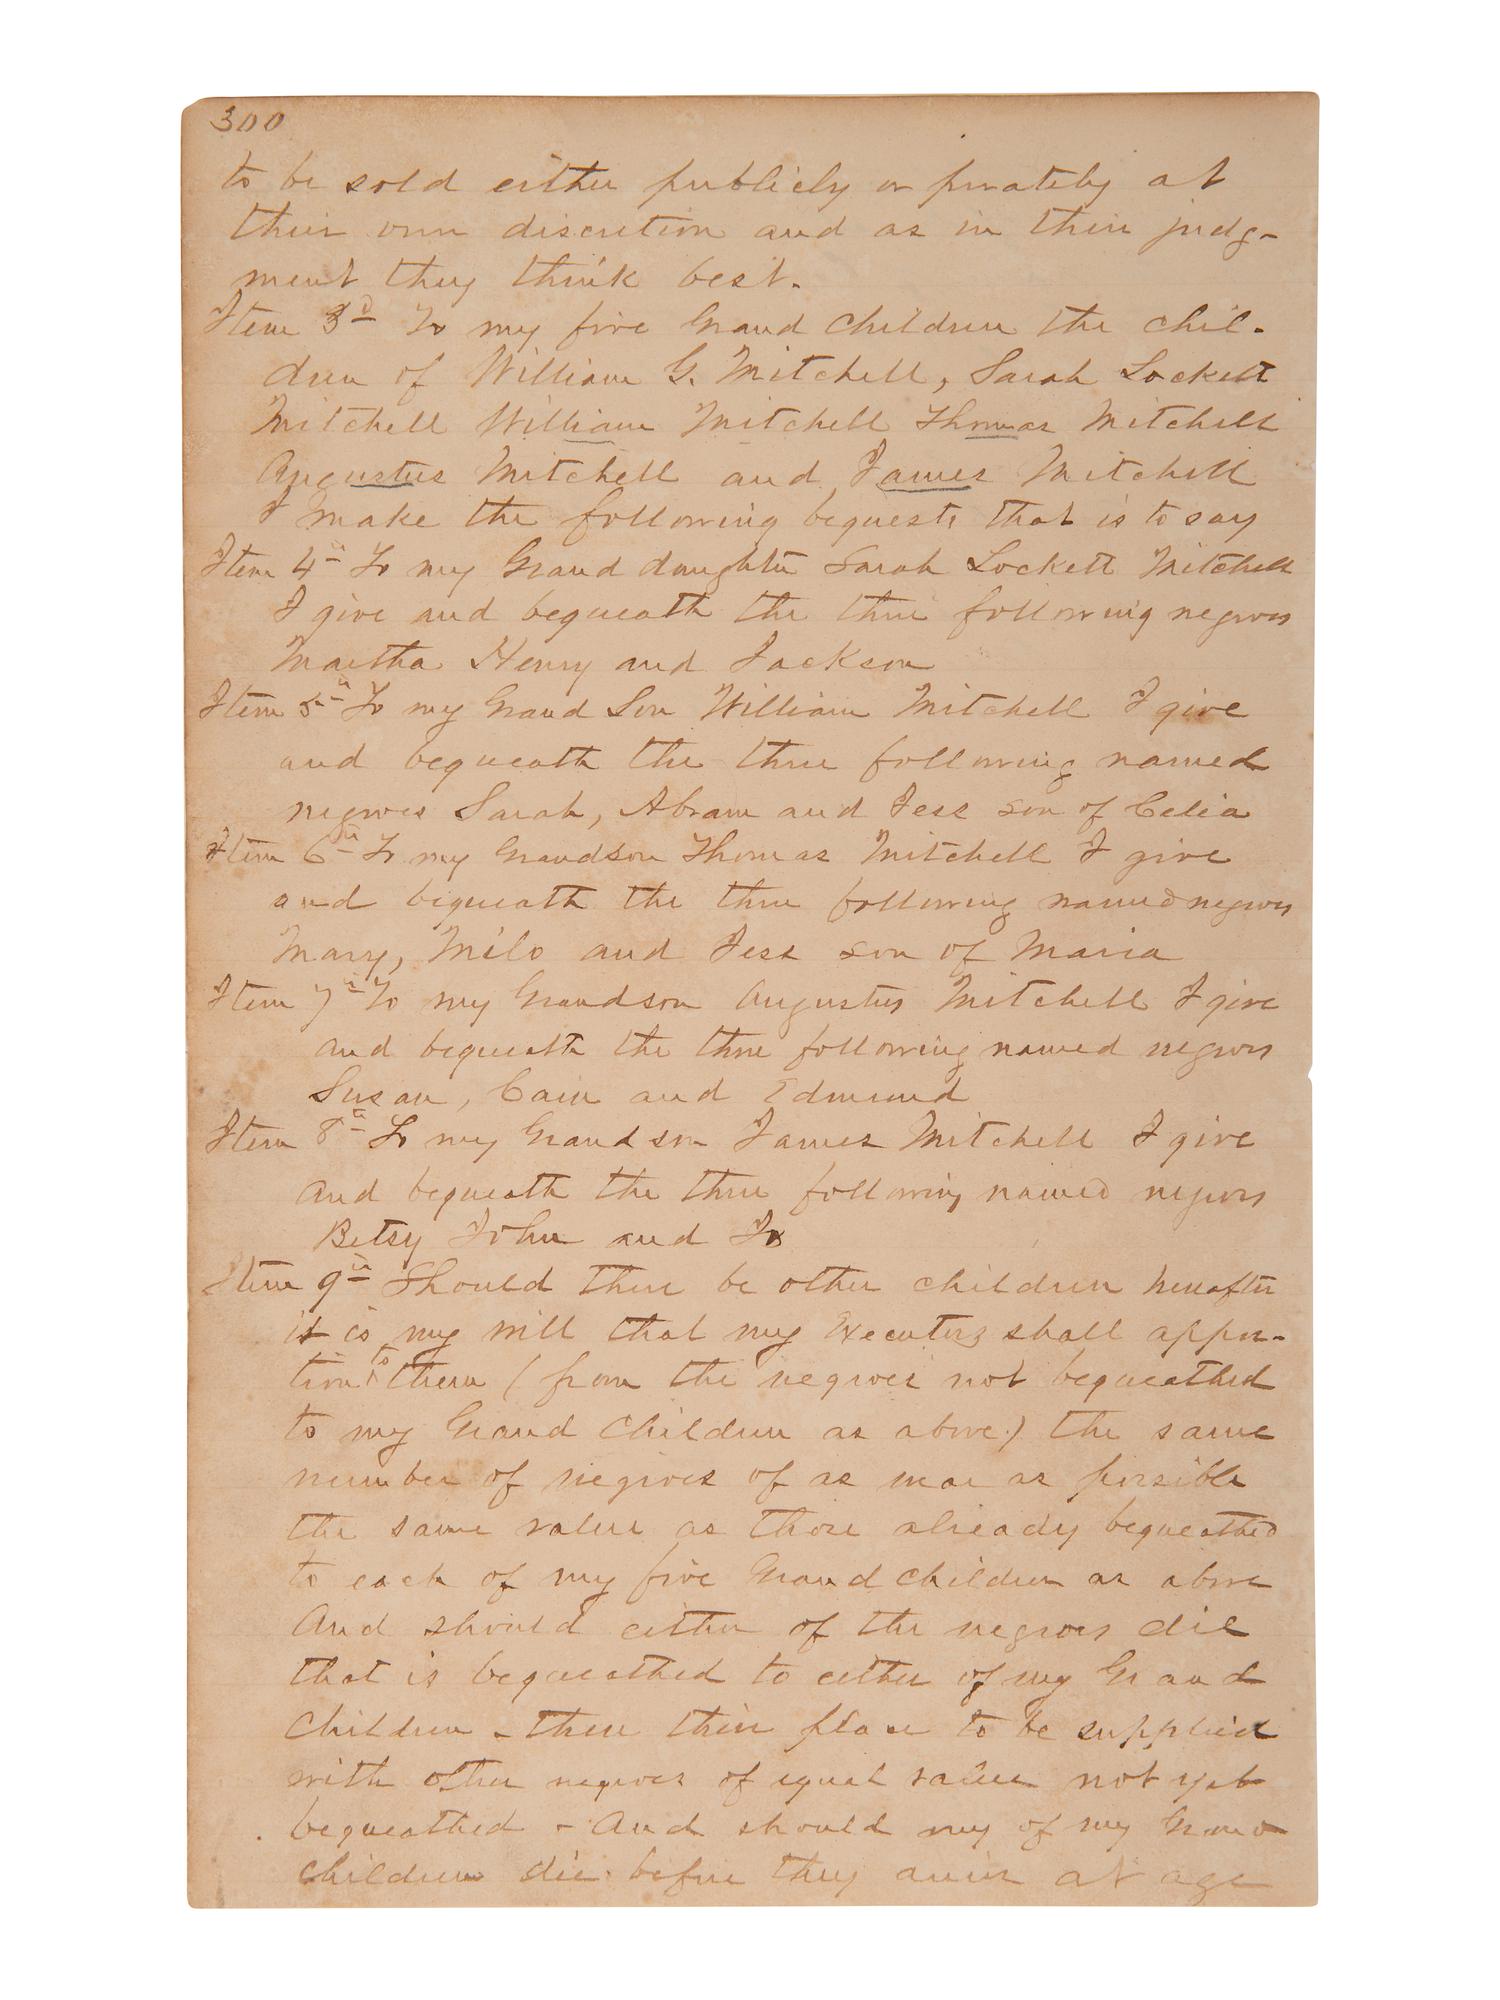 300
to be sold either publicly or privately at
their own discretion and as in their judg-
ment they think best.
Item 3d To my five Grand Children the chil-
dren of William G. Mitchell, Sarah Lockett
Mitchell William Mitchell Thomas Mitchell
Augustus Mitchell and James Mitchell
I make the following bequests that is to say
Item 4th To my Grand daughter Sarah Lockett Mitchell
I give and bequeath the three following negroes
Martha Henry and Jackson
Item 5th To my Grand Son William Mitchell I give
and bequeath the three following named
negroes Sarah, Abram and Jess son of Celia
Item 6th To my Grandson Thomas Mitchell I give
and bequeath the three following named negroes
Mary, Milo and Jess son of Maria
Item 7th To my Grandson Augustus Mitchell I give
and bequeath the three following named negroes
Susan, Cain and Edmund
Item 8th To my Grandson James Mitchell I give
and bequeath the three following named negroes
Betsy John and
Item 9th Should there be other children hereafter
it is my will that my Executors shall appor-
tion to them (from the negroes not bequeathed
to my Grand Children as above) the same
number of negroes of as near as possible
the same value as those already bequeathed
to each of my five Grand children as above
And should either of the negroes die
that is bequeathed to either of my Grand
Children - then their place to be supplied
with other negroes of equal value not yet
bequeathed - And should any of my Grand
Children die before they arrive at age